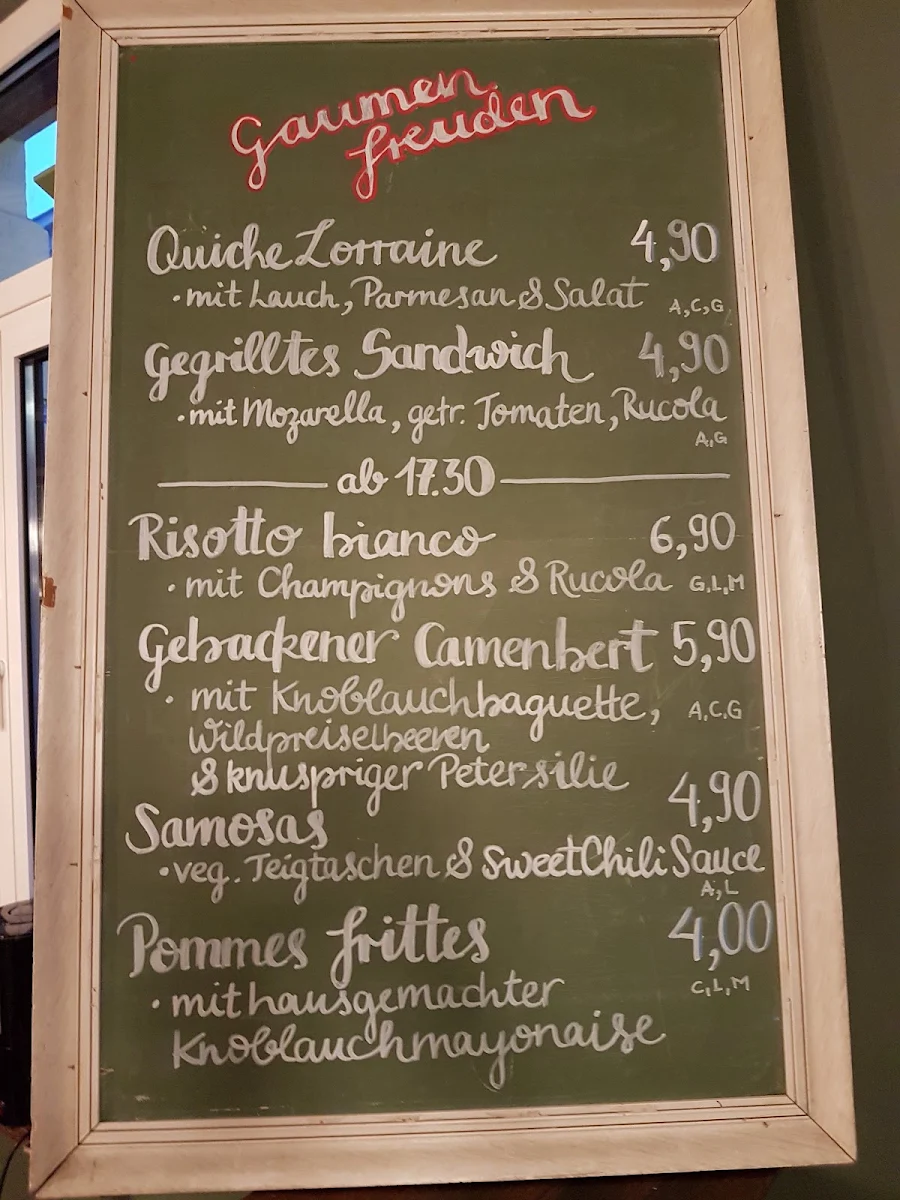 Gaumen
freuden
Quiche Lorraine 4,90
• mit Lauch, Parmesan & Salat A,C,G
Gegrilltes Sandwich 4,90
• mit Mozarella, getr. Tomaten, Rucola
A,G
ab 17.30
Risotto bianco 6,90
• mit Champignons & Rucola G,L,M
Gebackener Camenbert 5,90
• mit Knoblauchbaguette, A,C,G
Wildpreiselbeeren
& knuspriger Petersilie
Samosas 4,90
• veg. Teigtaschen & SweetChili Sauce
A,L
Pommes frittes 4,00
• mit hausgemachter C,L,M
Knoblauchmayonaise